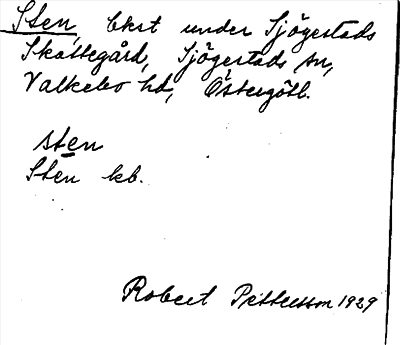 Sten, bkst under Sjögestads
Skattegård, Sjögestads sn,
Valkebo hd, Östergötl.
sten
Sten kb.
Robert Pettersson 1929